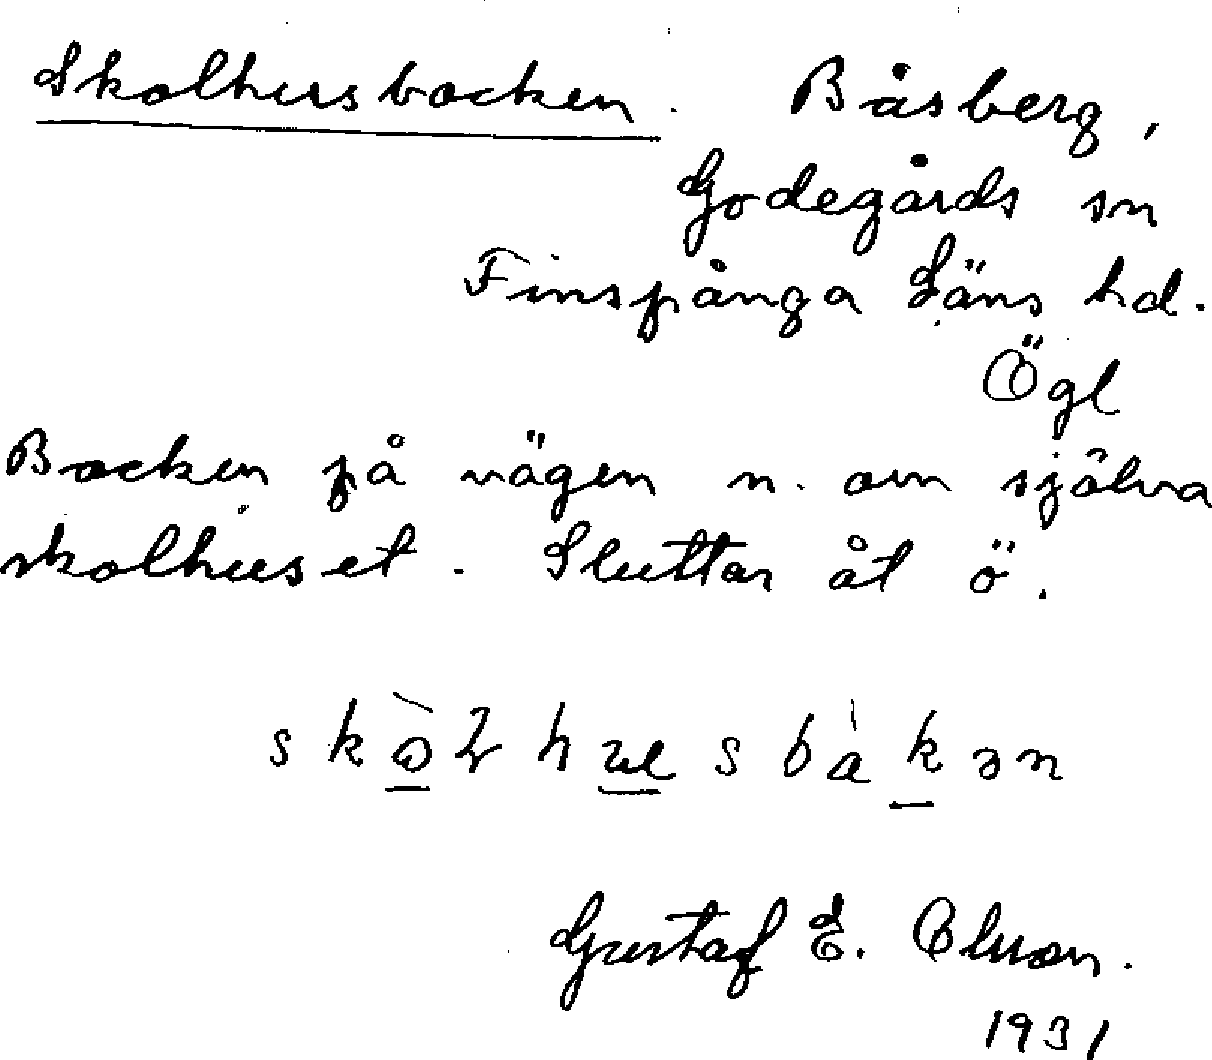 Skolhusbacken. Båsberg,
Godegårds sn
Finspånga Läns hd.
Ögl
Backen på vägen n. om själva
skolhuset. Sluttar åt ö.
Gustaf E. Olsson.
1931